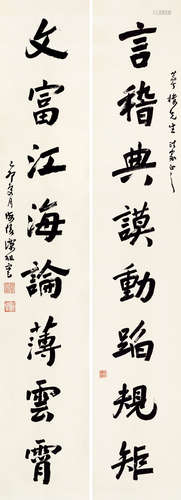 言稽典謨動蹈規矩
文富江海論薄雲霄
先生
乙卯
月